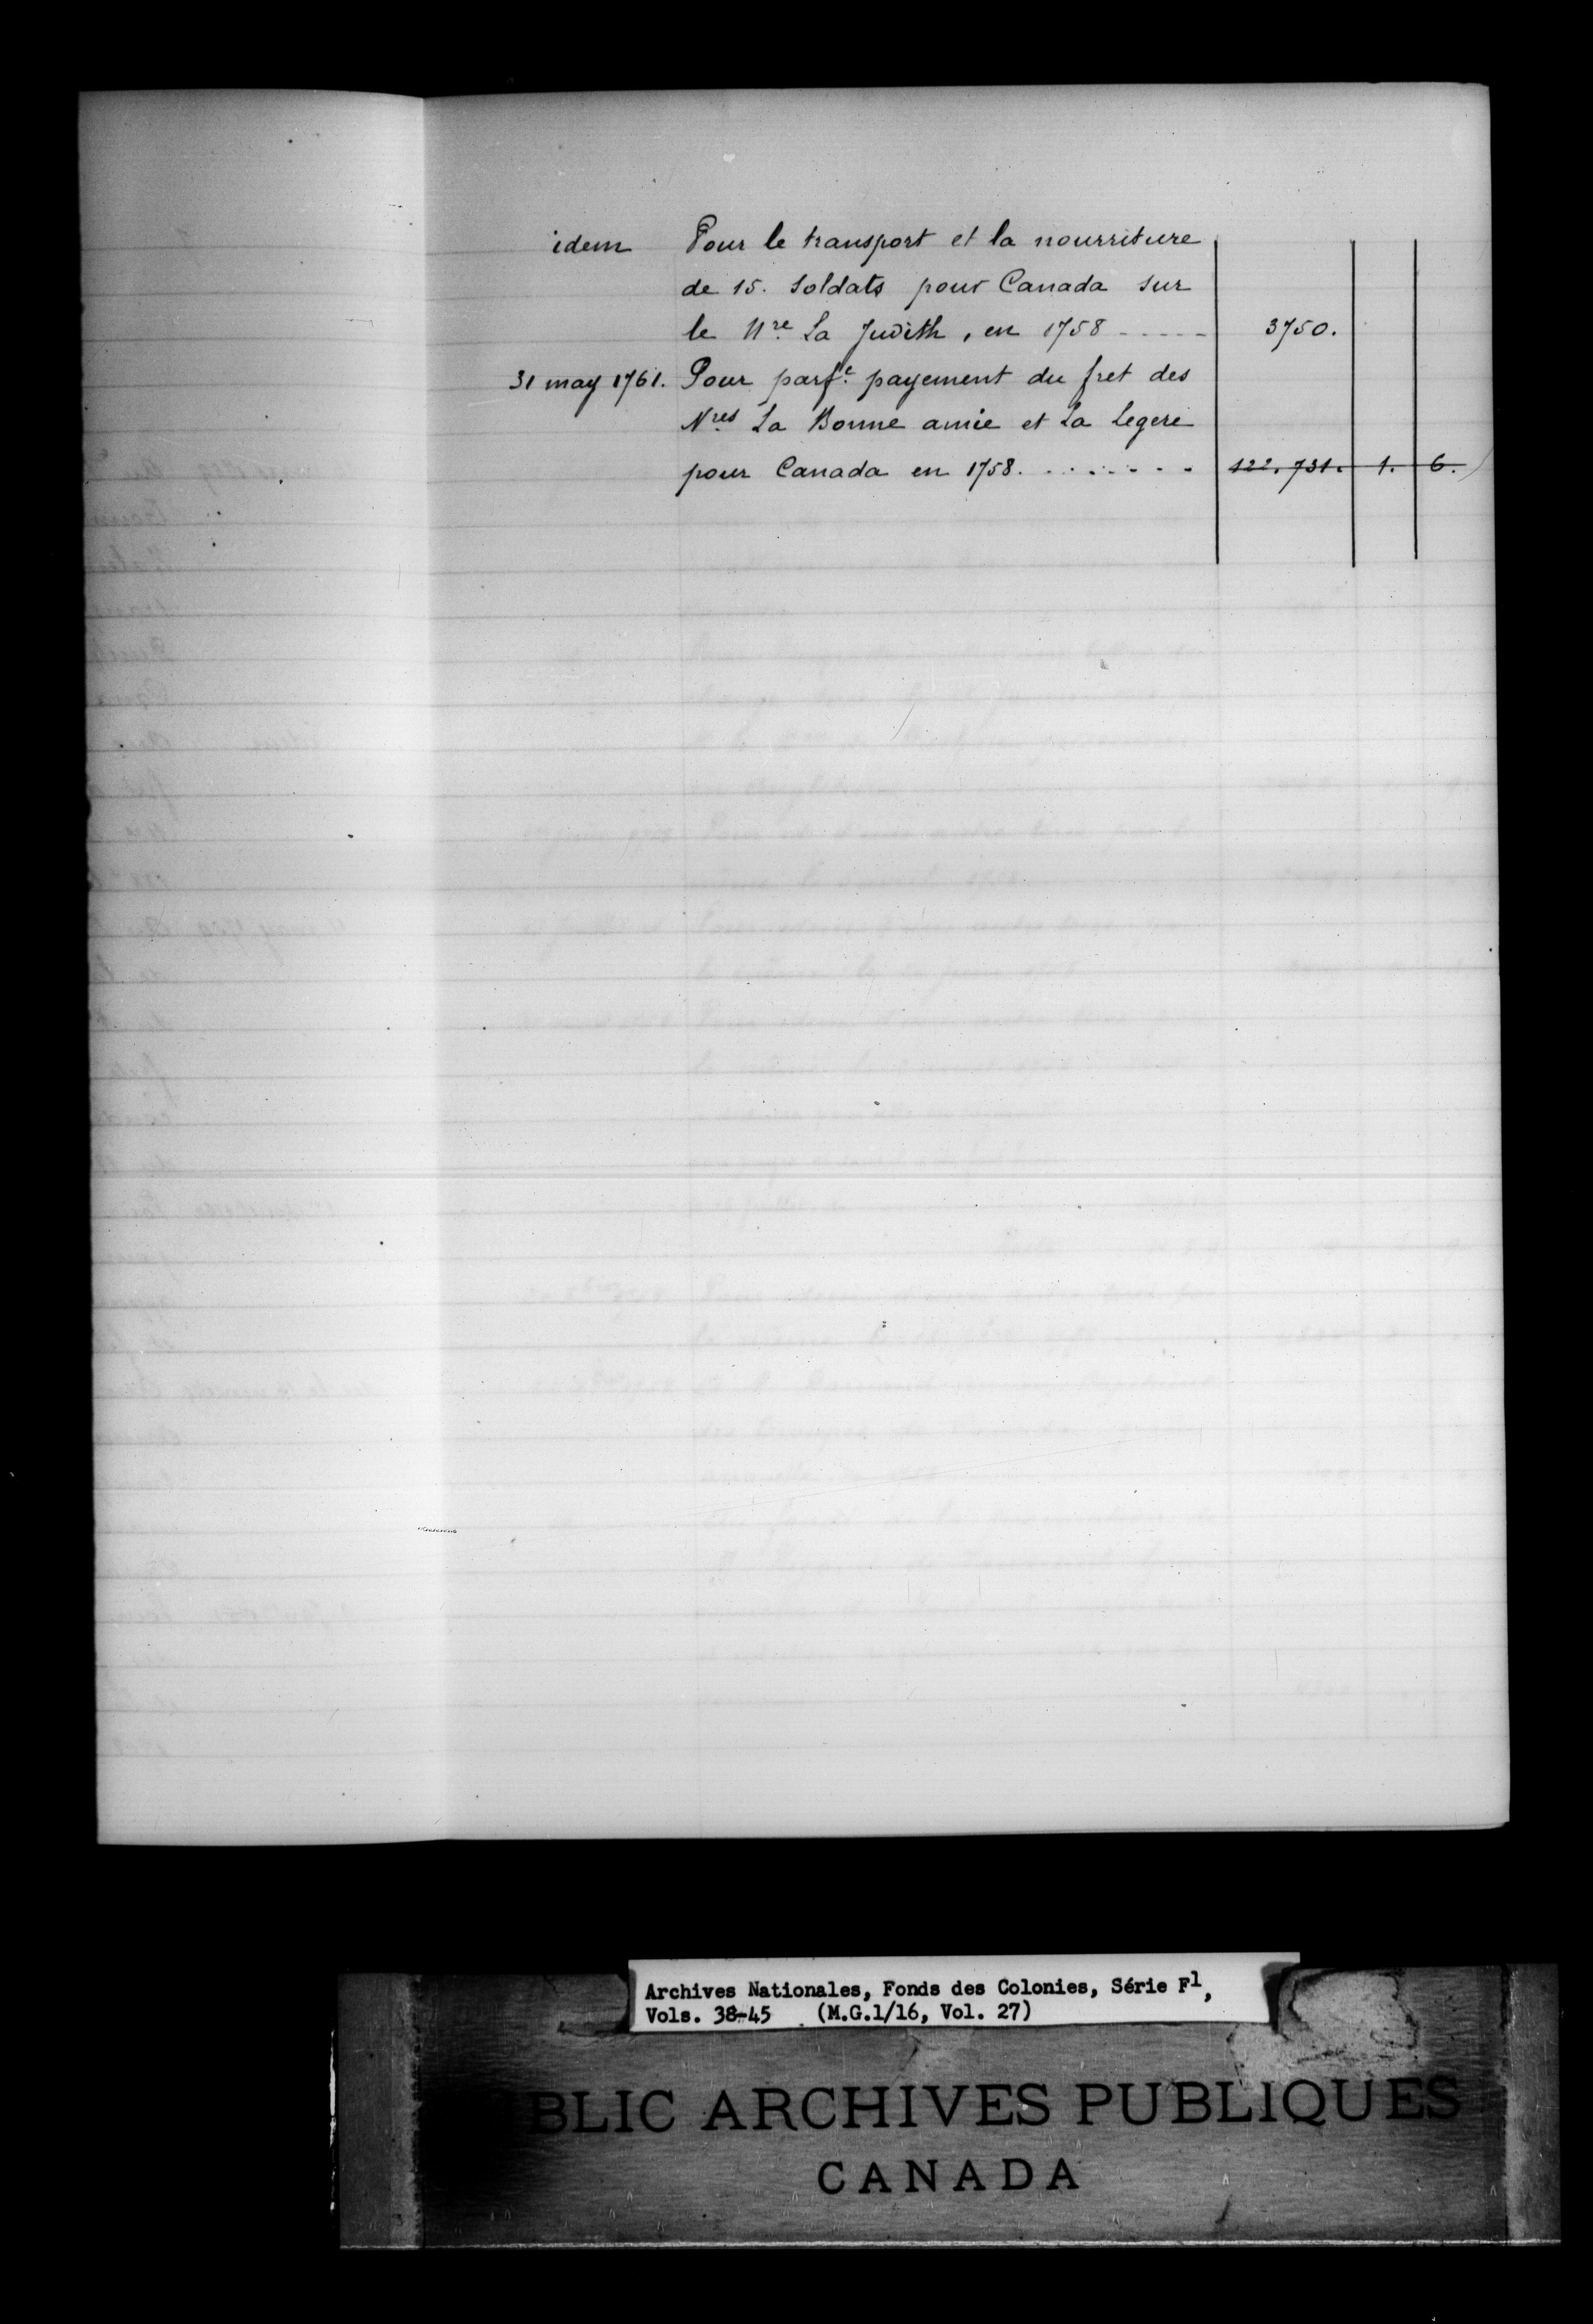 idem Pour le transport et la nourriture
de 15. Soldats pour Canada sur
le Nre La Judith, en 1758 ----- 3750.
31 may 1761. Pour parfe. payement du fret des
Nres La Bonne amie et La Legere
pour Canada en 1758. . . . . . . . . 122.731. 1. 6.
Archives Nationales, Fonds des Colonies, Série F1,
Vols. 38-45 (M.G.1/16, Vol. 27)
BLIC ARCHIVES PUBLIQUES
CANADA